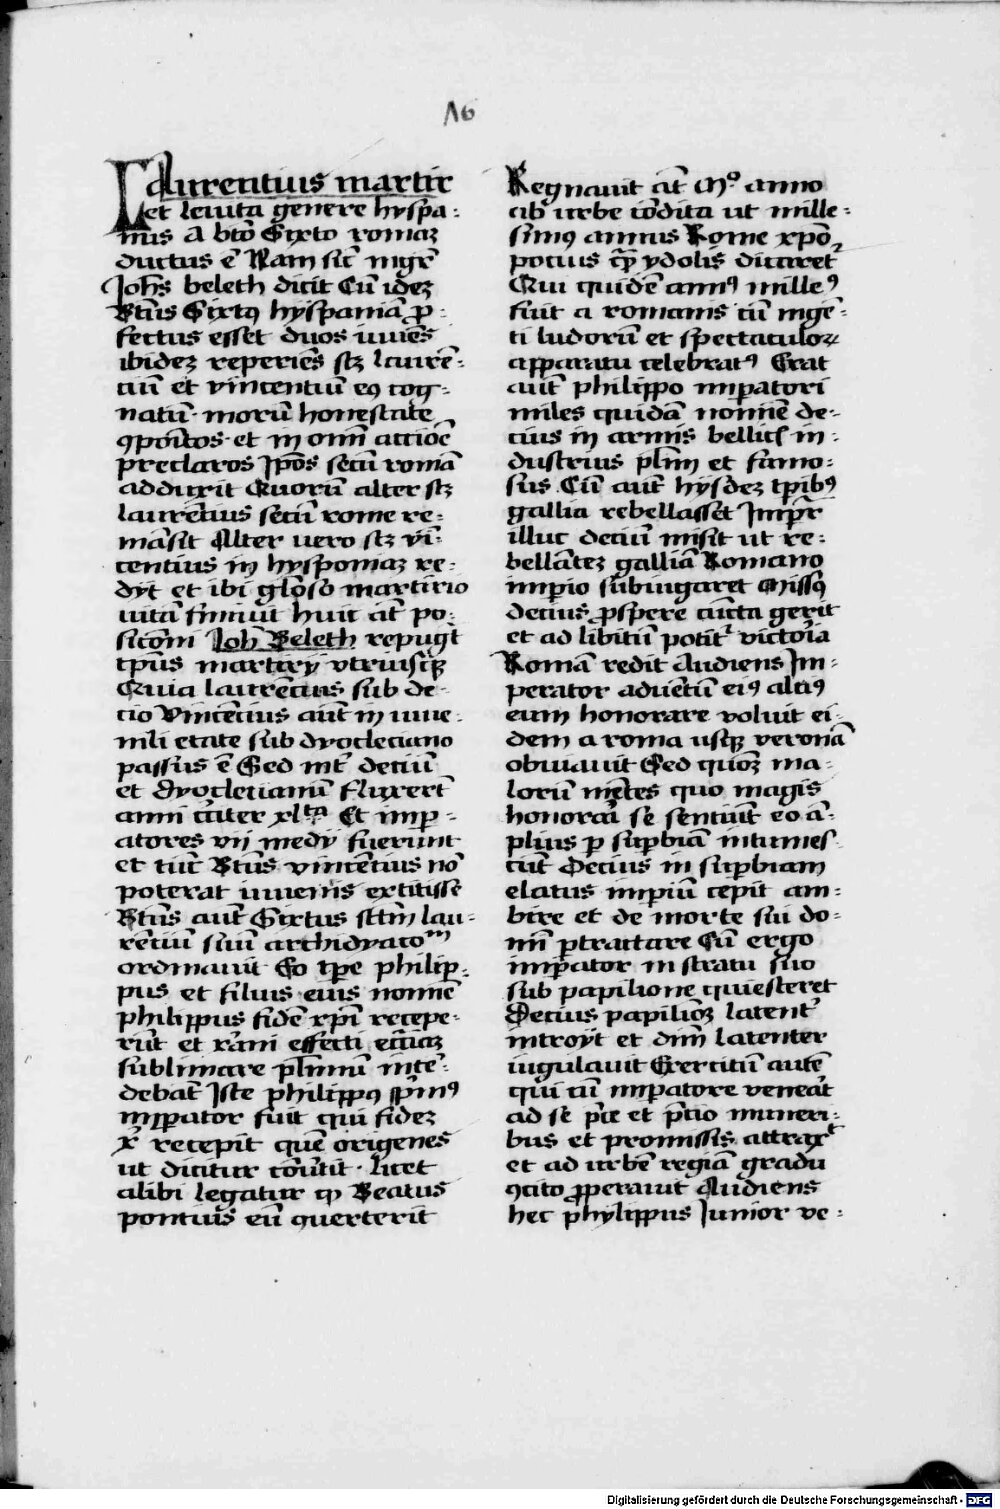 16
Laurentius martir
et leuita genere hyspa:
nus a bto Sixto romaz
ductus ē Nam sic̄ ingē
Joh̄s beleth dicit Cū idez
Btūs Sixtꝰ hyspaniā ꝓ-
fectus esset duos iuuēs
ibidez reperiēs scz laurē-
ciū et vincentiū eꝰ cog-
natū · morū honestate
ꝯpositos · et in om̄i acciōe
preclaros Ip̄os secū romā
adduxit Quorū alter scz
laurētius secū rome re:
māsit Alter uero scz vī:
centius in hyspaniaz re:
dyt et ibi gl̄oso martirio
uitā finiuit huic āt po:
sicōni Joh̄ Beleth repugt
tp̄us martirij utriusqꝫ
Quia laurēcius sub de-
cio Vincēcius aūt in iuue-
nili etate sub dyocleciano
passus ē Sed int̄ deciū
et dyoclecianū fluxert̄
anni c̄citer xlta Et imꝑ-
atores vij medij fuerunt
et tūc Btūs vincēcius nō
poterat iuuenis extitisse
Btūs aūt Sixtus sctm̄ lau-
rēciū suū archidyacom
ordinauit Eo tp̄e philip-
pus et filius eius nomīe
philippus fidē xp̄i recepe-
rūt et x̄ani effecti ecc̄iaz
sublimare pl̄imū intē-
debāt Iste philippꝰ p̄mꝰ
imꝑator fuit qui fidez
x̄ recepit quē origenes
ut dicitur cōūtit · licet
alibi legatur ꝙ Beatus
pontius eū ꝯuerterit
Regnauit āt Mº anno
ab urbe cōdita ut mille:
simꝰ annus Rome xp̄o
pocius qꝫ ydolis dicaret
Qui quidē annꝰ milleꝰ
fuit a romanis cū ingē-
ti ludorū et spectaculoꝝ
apparatu celebratꝰ Erat
aūt philippo imꝑatori
miles quidā nomīe de-
cius in armis bellicꝭ in:
dustrius pl̄im et famo:
sus Cū aūt hysdez tp̄ibꝰ
gallia rebellasset Imꝑr
illuc deciū misit ut re:
bellātez galliā Romano
imꝑio subiugaret Missꝰ
decius ꝓspere cūcta gerit
et ad libitū potit̉ victor̄ia
Romā redit Audiens Im-
perator aduētū eiꝰ altiꝰ
eum honorare voluit ei-
dem a roma usqꝫ veronā
obuiauit Sed qūoz ma-
lorū mētes quo magis
honorār̄ se senciūt eo ā-
plius ꝑ suꝑbiā intumes-
cūt Decius in suꝑbiam
elatus imꝑiū cepit am:
bire et de morte sui do:
mī ꝑtractare Cū ergo
imꝑator in stratu suo
sub papilione quiesceret
Decius papiliōez latent̉
introyt et dn̄m latenter
iugulauit Exercitū autē
qui cū imꝑatore venēat
ad se p̄ce et p̄cio muneri:
bus et promissis attraxt
et ad urbē regiā gradu
ꝯcito ꝓperauit Audiens
hec phylippus Junior ve:
Digitalisierung gefördert durch die Deutsche Forschungsgemeinschaft - DFG